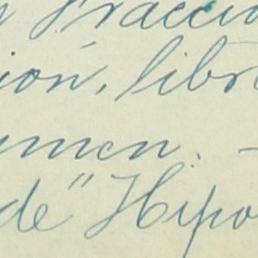 y Fracció
ión, libr
umen. -
de " Hipo